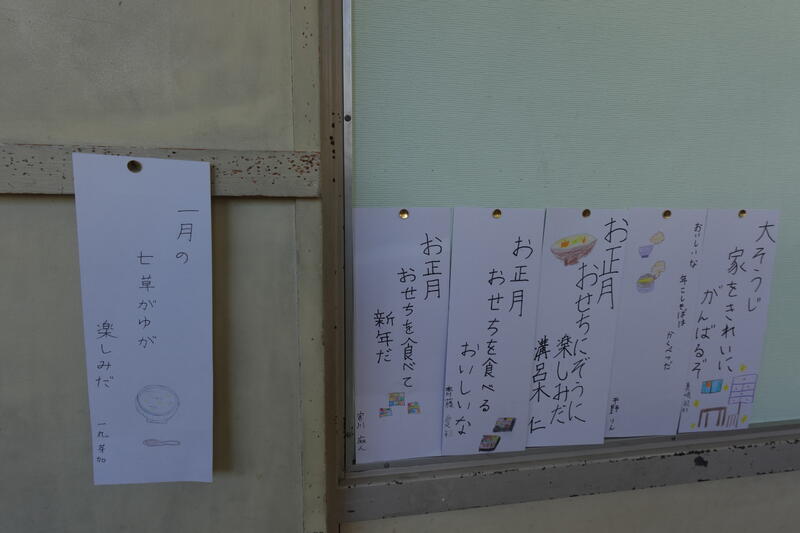 大そうじ
家をきれいに
がんばるぞ
おいしいな
年こしそばは
かくべつだ
平野 りん
お正月
おせちにぞうに
楽しみだ
溝呂木 仁
お正月
おせちを食べる
おいしいな
お正月
おせちを食べて
新年だ
宮川
一月の
七草がゆが
楽しみだ